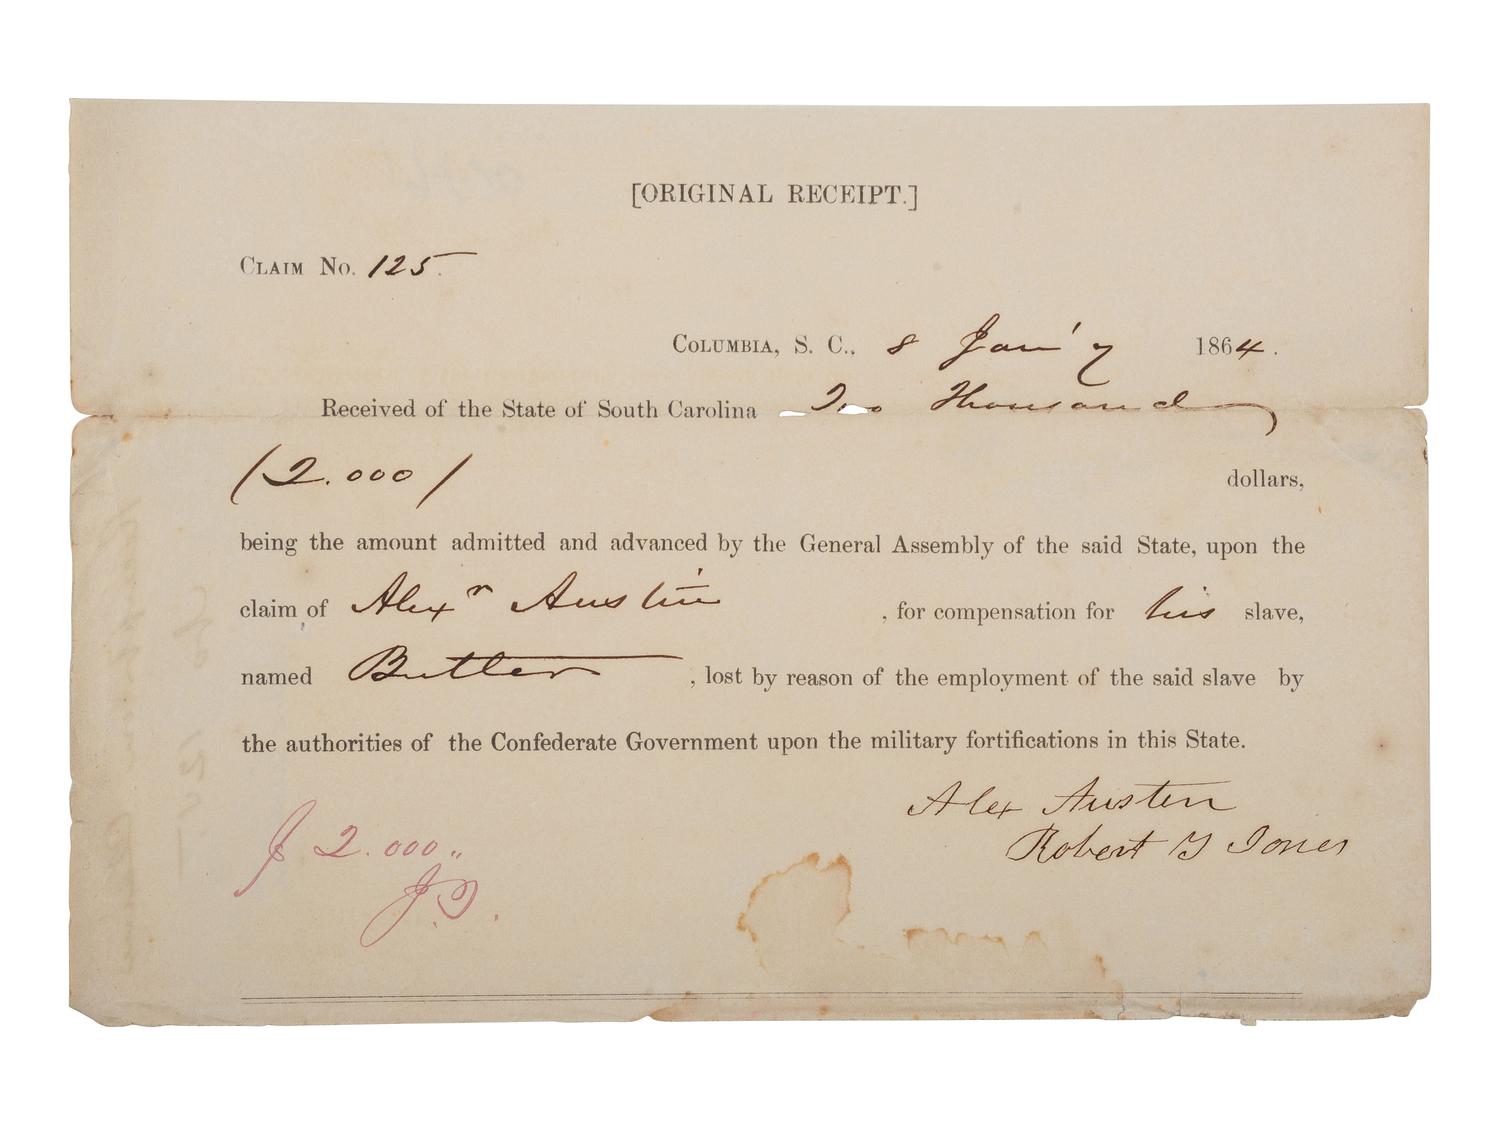 [ORIGINAL RECEIPT.]
CLAIM No. 125.
COLUMBIA, S. C., 8 Jan'y 1864.
Received of the State of South Carolina Two Thousand
(2.000) dollars,
being the amount admitted and advanced by the General Assembly of the said State, upon the
claim of Alexr Austin , for compensation for his slave,
named Butler , lost by reason of the employment of the said slave by
the authorities of the Confederate Government upon the military fortifications in this State.
Alex Austin
Robert Y Jones
$ 2.000